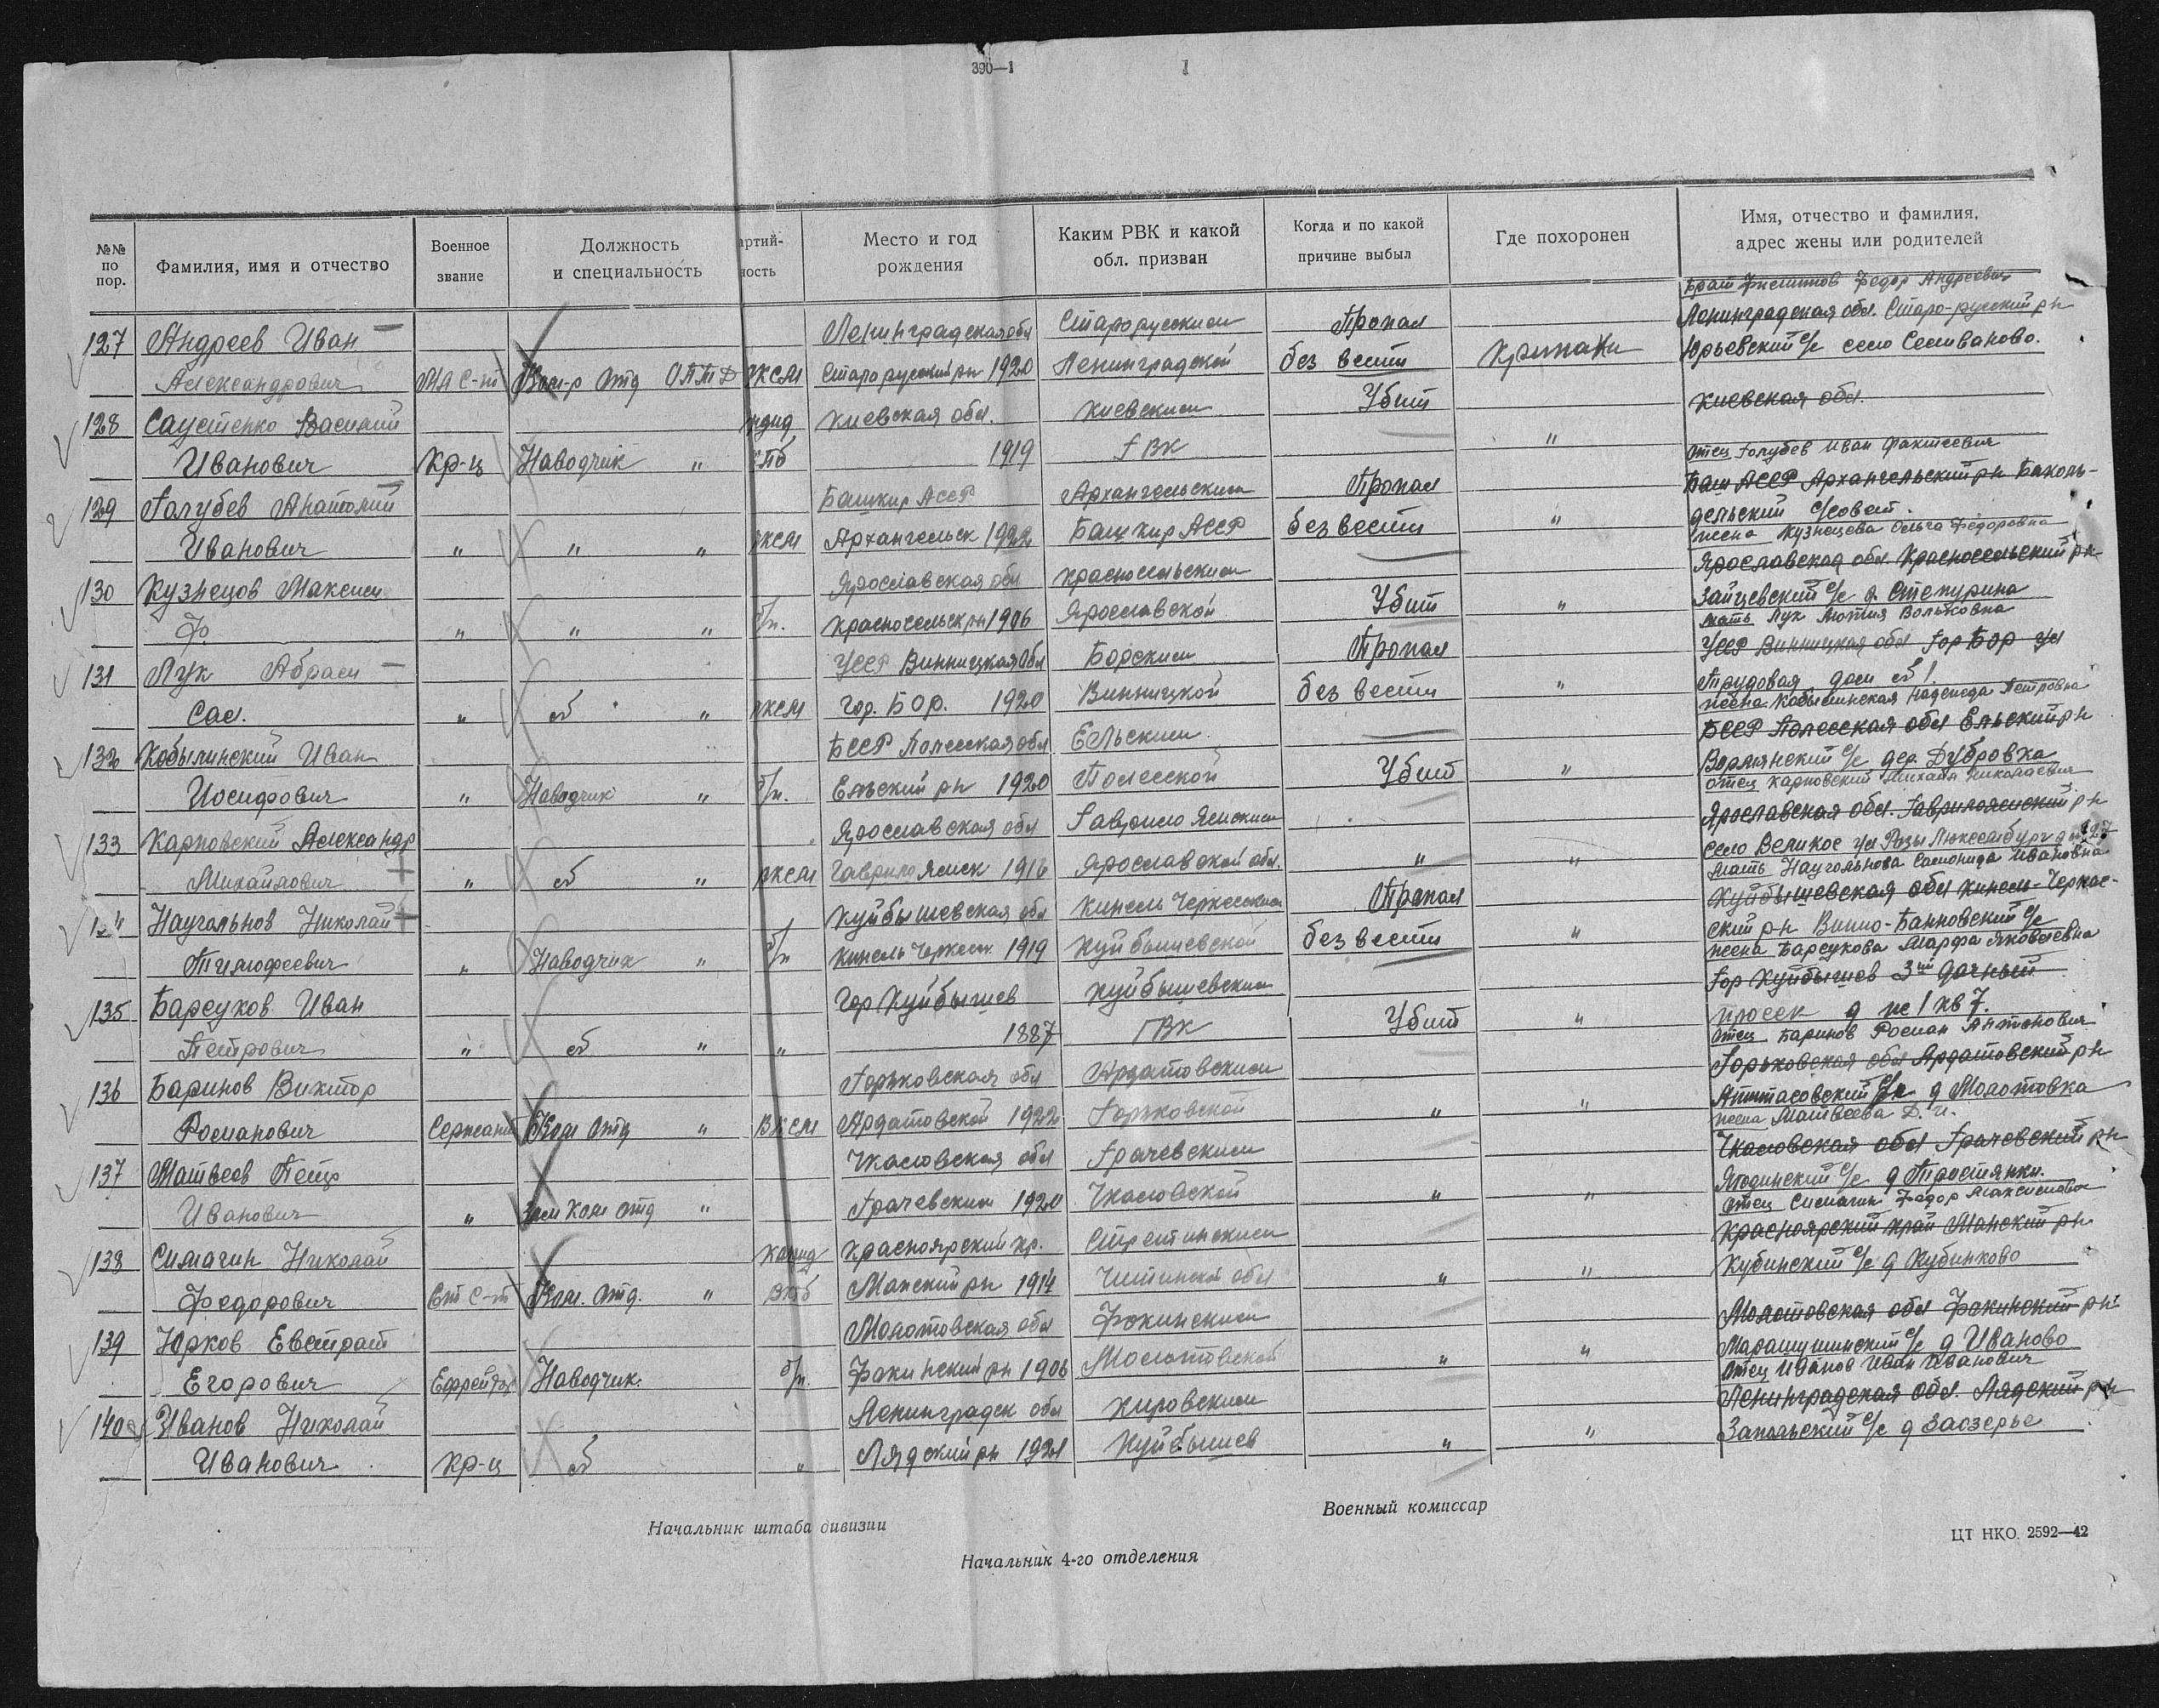 390—1
№№ по пор.
Фамилия, имя и отчество
Военное звание
Должность и специальность
артий- ность
Место и год рождения
Каким РВК и какой обл. призван
Когда и по какой причине выбыл
Где похоронен
Имя, отчество и фамилия, адрес жены или родителей
Брат Филиппов Федор Андреевич
127 Андреев Иван Ленинградская обл Старорусским Пропал Ленинградская обл. Старо-русский рн
Александрович Мл с-т Ком-р отд ПТД ЛКСМ Старорусский рн 1920 Ленинградской без вести Юрьевский с/с село Селиваново.
128 Саустенко Василий канд Киевская обл. Киевским Убит Киевская обл.
Иванович Кр-ц Наводчик " 1919 ГВК "
отец Голубев Иван
129 Голубев Анатолий Башкир АССР Архангельским Пропал Баш АССР Архангельский рн Баколь-
Иванович " " " ЛКСМ Архангельск 1922 Башкир АССР без вести " дельский с/совет.
жена Кузнецова Ольга Федоровна
130 Кузнецов Максим Ярославская обл Красносельским Ярославская обл. Красносельский рн
Ф " " " б/п. Красносельск рн 1906 Ярославской Убит " Зайцевский с/с д. Степурина
мать Лук Мотия Вольковна
131 Лук Абрам УССР Винницкая обл Борским Пропал УССР Винницкая обл Гор Бор ул
Сам. " об " ЛКСМ гор. Бор. 1920 Винницкой без вести " Трудовая дом
жена Кобылинская Надежда Петровна
132 Кобылинский Иван БССР Полесская обл Ельским БССР Полесская обл Ельский рн
Иосифович " Наводчик " б/п. Ельский рн 1920 Полесской Убит " дер. Дубровка
отец Карповский Михаил Николаевич
133 Карповский Александр Ярославская обл Гаврило Ямским Ярославская обл. Гаврилоямский рн
Михайлович " об " ЛКСМ Гаврило Ямск 1916 Ярославской обл. " " село Великое ул Розы Люксембург д № 27
мать Наугольнова Ивановна
Наугольнов Николай Куйбышевская обл Кинель Черкесским Пропал Куйбышевская обл Кинель-Черкас-
Тимофеевич " Наводчик " б/п Кинель Черкесск 1919 Куйбышевской без вести " ский рн Винно-Банновский с/с
жена Барсукова Марфа Яковлевна
135 Барсуков Иван Гор Куйбышев Куйбышевским Гор Куйбышев 3ий дачный
Петрович " об " " 1887 ГВК Убит " просек д № 1 кв 7.
отец Баринов Роман Антонович
136 Баринов Виктор Горьковская обл Ардатовским Горьковская обл Ардатовский рн
Романович Сержант Ком отд " ВЛКСМ Ардатовской 1922 Горьковской " " с/с д Молотовка
жена Матвеева Д. И.
137 Матвеев Петр Чкаловская обл Грачевским Чкаловская обл Грачевский рн
Иванович " Зам Ком отд " Грачевским 1920 Чкаловской " " с/с д Простянки.
отец Симагин Федор Максимович
138 Симагин Николай канид Красноярский кр. Стретинским Красноярский край Манский рн
Федорович Ст с-т Ком. отд. " ВКПб Манский рн 1914 Читинской обл " " Кубинский с/с д Кубинково
139 Юрков Евстрат Молотовская обл Фокинским Молотовская обл Фокинский рн
Егорович Ефрейтор Наводчик. б/п. Фокинский рн 1906 Молотовской " " Марашушинский с/с д Иваново
отец Иванов Иван Иванович
140 Иванов Николай Ленинградск обл Кировским Ленинградская обл. Лядский рн
Иванович Кр-ц об " Лядский рн 1921 Куйбышев " " Запольский с/с д Заозерье
Начальник штаба дивизии
Военный комиссар
Начальник 4-го отделения
ЦТ НКО. 2592—42